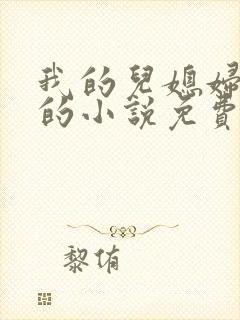 我的兒媳婦
的小說免費
黎侑